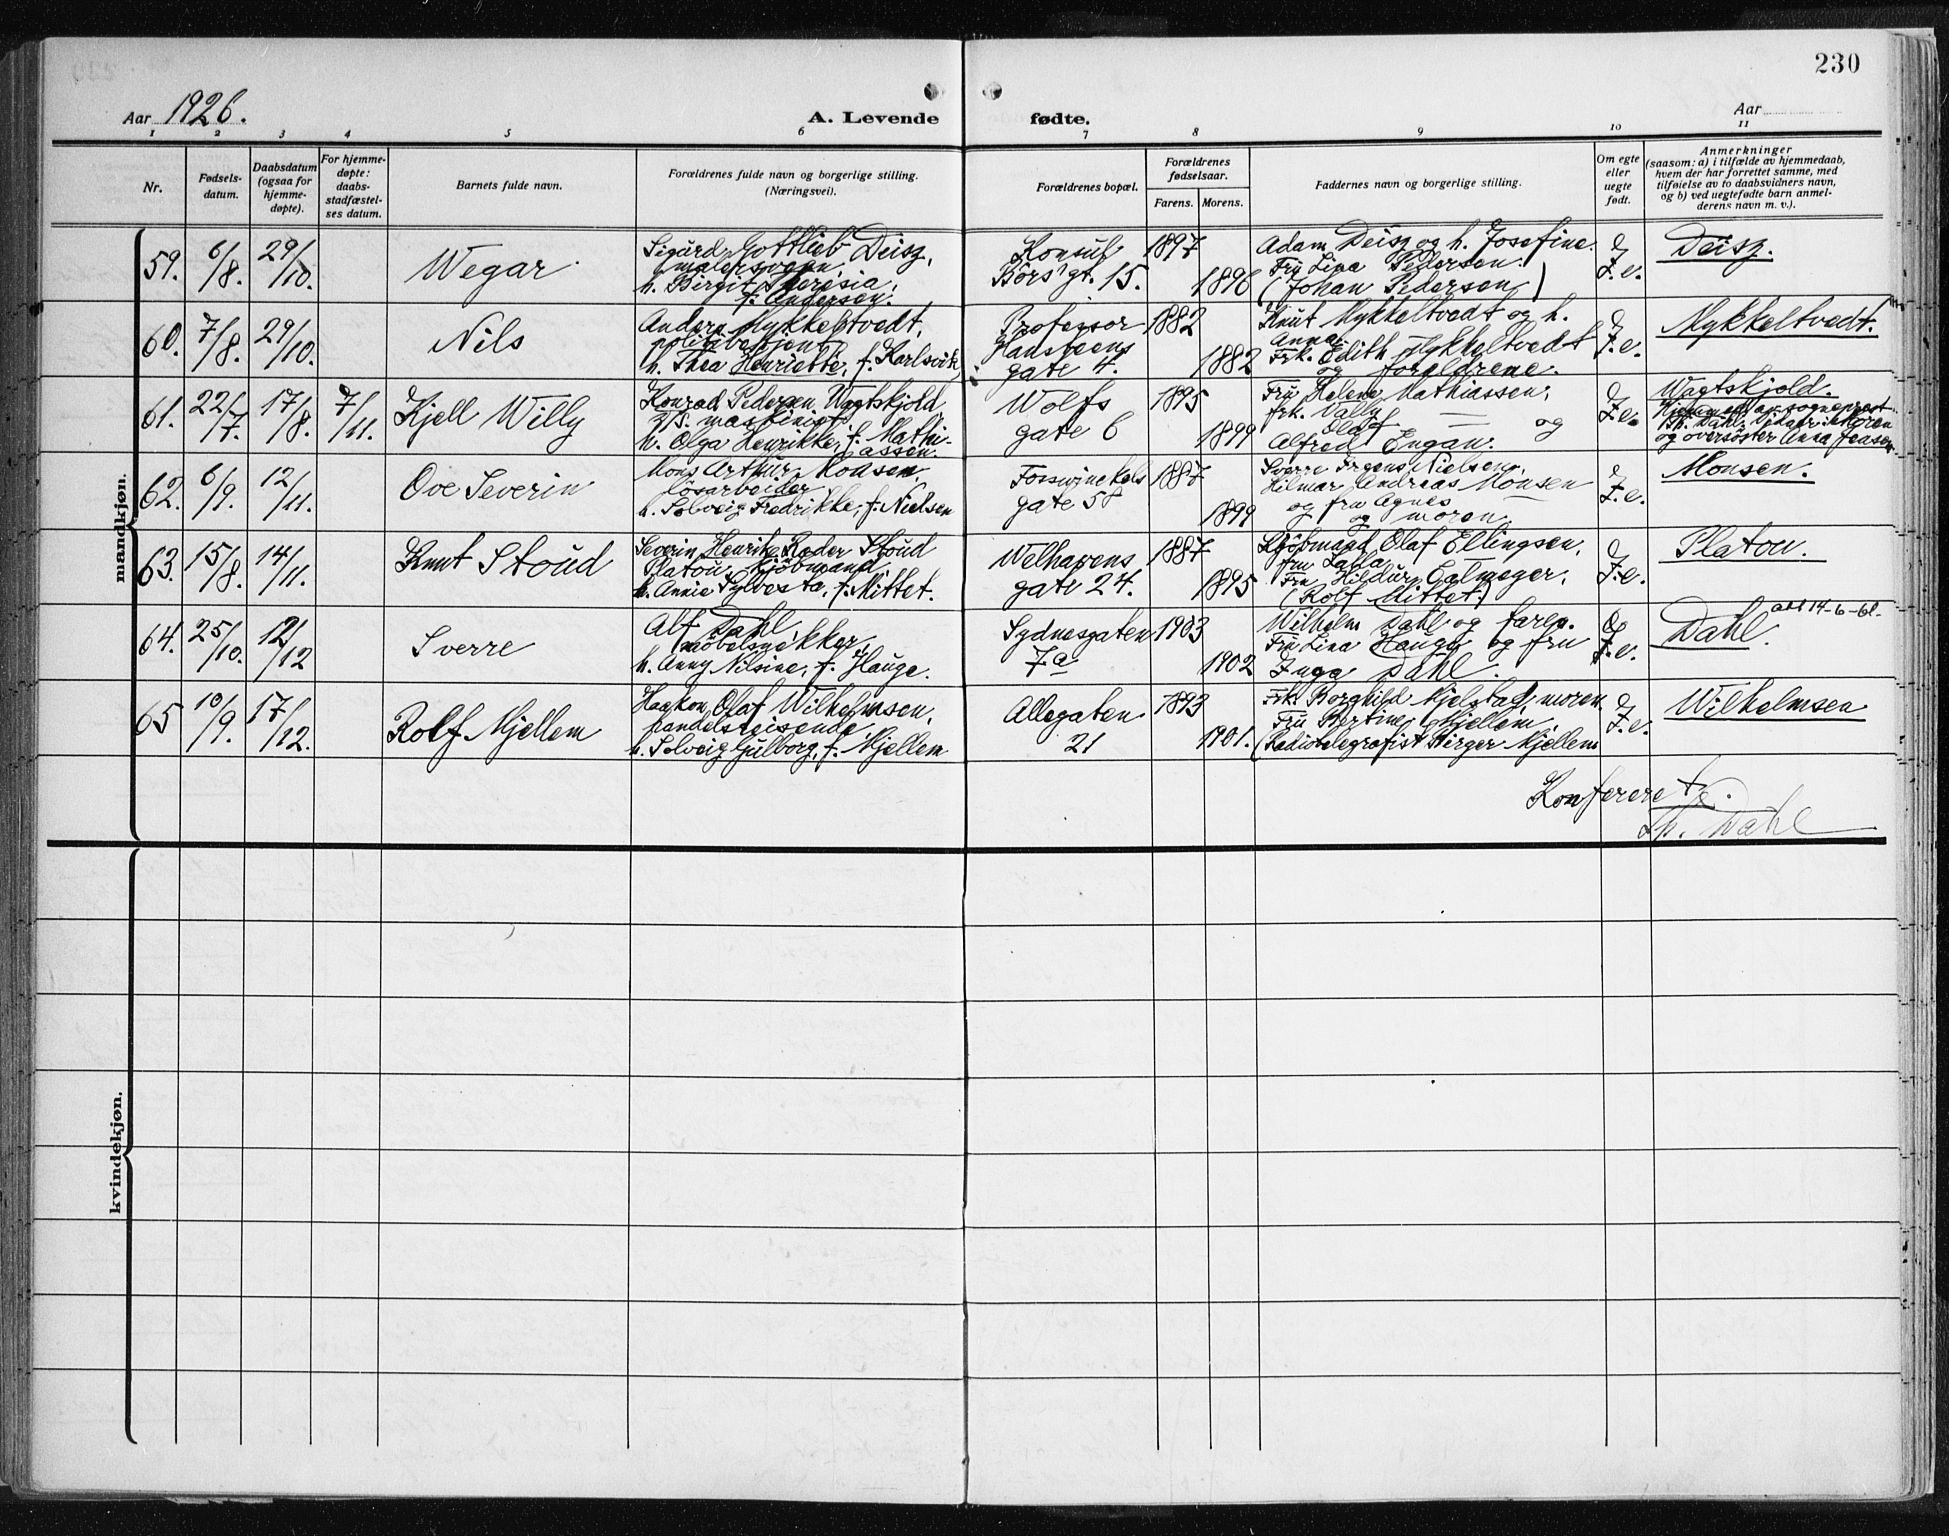 230
Aar 1926.
A. Levende fødte.
Aar
1 2 3 4 5 6 7 8 9 10 11
Nr.
Fødsels-
datum.
Daabsdatum
(ogsaa for
hjemme-
døpte).
For hjemme-
døpte:
daabs-
stadfæstel-
ses datum.
Barnets fulde navn.
Forældrenes fulde navn og borgerlige stilling.
(Næringsvei).
Forældrenes bopæl.
Forældrenes
fødselsaar.
Farens. Morens.
Faddernes navn og borgerlige stilling.
Om egte
eller
uegte
født.
Anmerkninger
(saasom: a) i tilfælde av hjemmedaab,
hvem der har forrettet samme, med
tilføielse av to daabsvidners navn,
og b) ved uegtefødte barn anmel-
derens navn m. v.).
mandkjøn.
59. 6/8. 29/10. Wegar
Sigurd Gottlieb Deisz,
malersvenn,
h. Birgit Theresia,
f. Andersen.
Konsul
Börs' gt. 15.
1897
1896
Adam Deisz og h. Josefine.
Fru Lina Pedersen.
(Johan Pedersen)
e
I.e.
Deisz.
60. 7/8. 29/10. Nils
Anders Mykkeltvedt,
politibetjent
h. Thea Henriette, f. Karlsvik
Professor
Hansteens
gate 4.
1882
1882
Knut Mykkeltvedt og h.
Anna,
Frk. Edith Mykkeltvedt
og foreldrene.
e
I.e.
Mykkeltvedt.
61. 22/7. 17/8. 7/11. Kjell Willy
Konrad Pedersen Wagtskjold
maskinist,
h. Olga Henrikke, f. Mathi-
assen.
Wolfs
gate 6
1895
1899
Fru Helene Mathiassen,
frk. Vally
Olaf — og
Alfred Engan.
e
I.e.
Wagtskjold.
Hjemmed. av sogneprest
Th. Dahl. Vidner: Moren
og oversöster Anna Jensen
62. 6/9. 12/11. Ove Severin
Mons Arthur Monsen,
lösarbeider
h. Solveig Fredrikke, f. Nielsen
Fosswinckels
gate 58
1887
1899
Sverre Irgens Nielsen,
Hilmar Andreas Monsen
og fru Agnes —
og moren
e
I.e.
Monsen.
63. 15/8. 14/11. Knut Stoud
Severin Henrik Roder Stoud
Platou, kjöbmand
h. Annie Sylvesta, f. Mittet.
Welhavens
gate 24.
1887
1895
Kjöbmand Olaf Ellingsen,
fru Laila
Fru Hildur Calmeyer,
(Rolf Mittet)
e
I.e.
Platou.
64. 25/10. 12/12 Sverre
Alf Dahl,
möbelsnekker,
h. Anny Nilsine, f. Hauge.
Sydnesgaten
7a
1903
1902
Wilhelm Dahl og faren.
Fru Lina Hauge og fru
Inga Dahl.
e
I.e.
Dahl.
att 14-6-61.
65 10/9. 17/12. Rolf Mjellem
Haakon Olaf Wilhelmsen,
handelsreisende
h. Solveig Gulborg, f. Mjellem
Allegaten
21
1893
1901.
Frk. Borghild Mjelstad, moren
Fru Bertine Mjellem,
(Radiotelegrafist Birger Mjellem
e
I.e.
Wilhelmsen
Konfereret.
Th. Dahl
kvindekjøn.